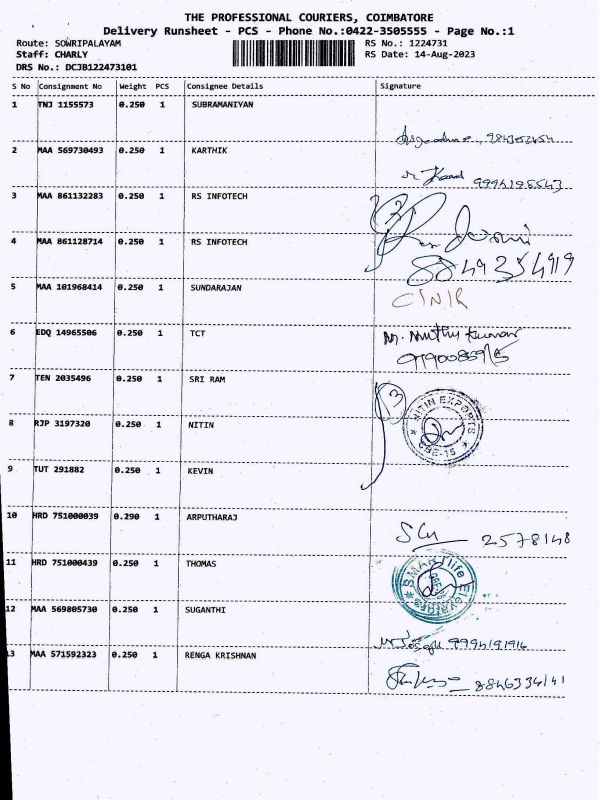 THE PROFESSIONAL COURIERS, COIMBATORE
Delivery Runsheet - PCS - Phone No.:0422-3505555 - Page No.:1
Route: SOWRIPALAYAM RS No.: 1224731
Staff: CHARLY RS Date: 14-Aug-2023
DRS No.: DCJB122473101
S No Consignment No Weight PCS Consignee Details Signature
1 TNJ 1155573 0.250 1 SUBRAMANIYAN
2 MAA 569730493 0.250 1 KARTHIK
9994195543
3 MAA 861132283 0.250 1 RS INFOTECH
4 MAA 861128714 0.250 1 RS INFOTECH
8849354919
5 MAA 101968414 0.250 1 SUNDARAJAN
C/NIR
6 EDQ 14965506 0.250 1 TCT M. Muthu Kumar
7 TEN 2035496 0.250 1 SRI RAM
8 RJP 3197320 0.250 1 NITIN
NITIN EXPORTS CBE-15
9 TUT 291882 0.250 1 KEVIN
10 HRD 751000039 0.290 1 ARPUTHARAJ
2578148
11 HRD 751000439 0.250 1 THOMAS
12 MAA 569805730 0.250 1 SUGANTHI
9994191914
13 MAA 571592323 0.250 1 RENGA KRISHNAN
8846334141